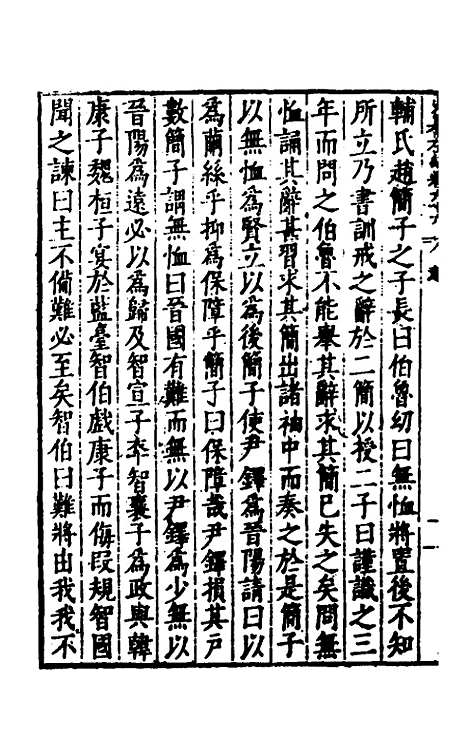 輔氏趙簡子之子長曰伯魯幼曰無恤將置後不知
所立乃書訓戒之辭於二簡以授二子曰謹識之三
年而問之伯魯不能舉其辭求其簡已失之矣問無
恤誦其辭甚習求其簡出諸袖中而奏之於是簡子
以無恤為賢立以為後簡子使尹鐸為晉陽請曰以
為繭絲乎抑為保障乎簡子曰保障哉尹鐸損其戸
數簡子謂無恤曰晉國有難而無以尹鐸為少無以
晉陽為遠必以為歸及智宣子卒智襄子為政與韓
康子魏桓子宴於藍臺智伯戲康子而侮段規智國
聞之諫曰主不備難必至矣智伯曰難將由我我不